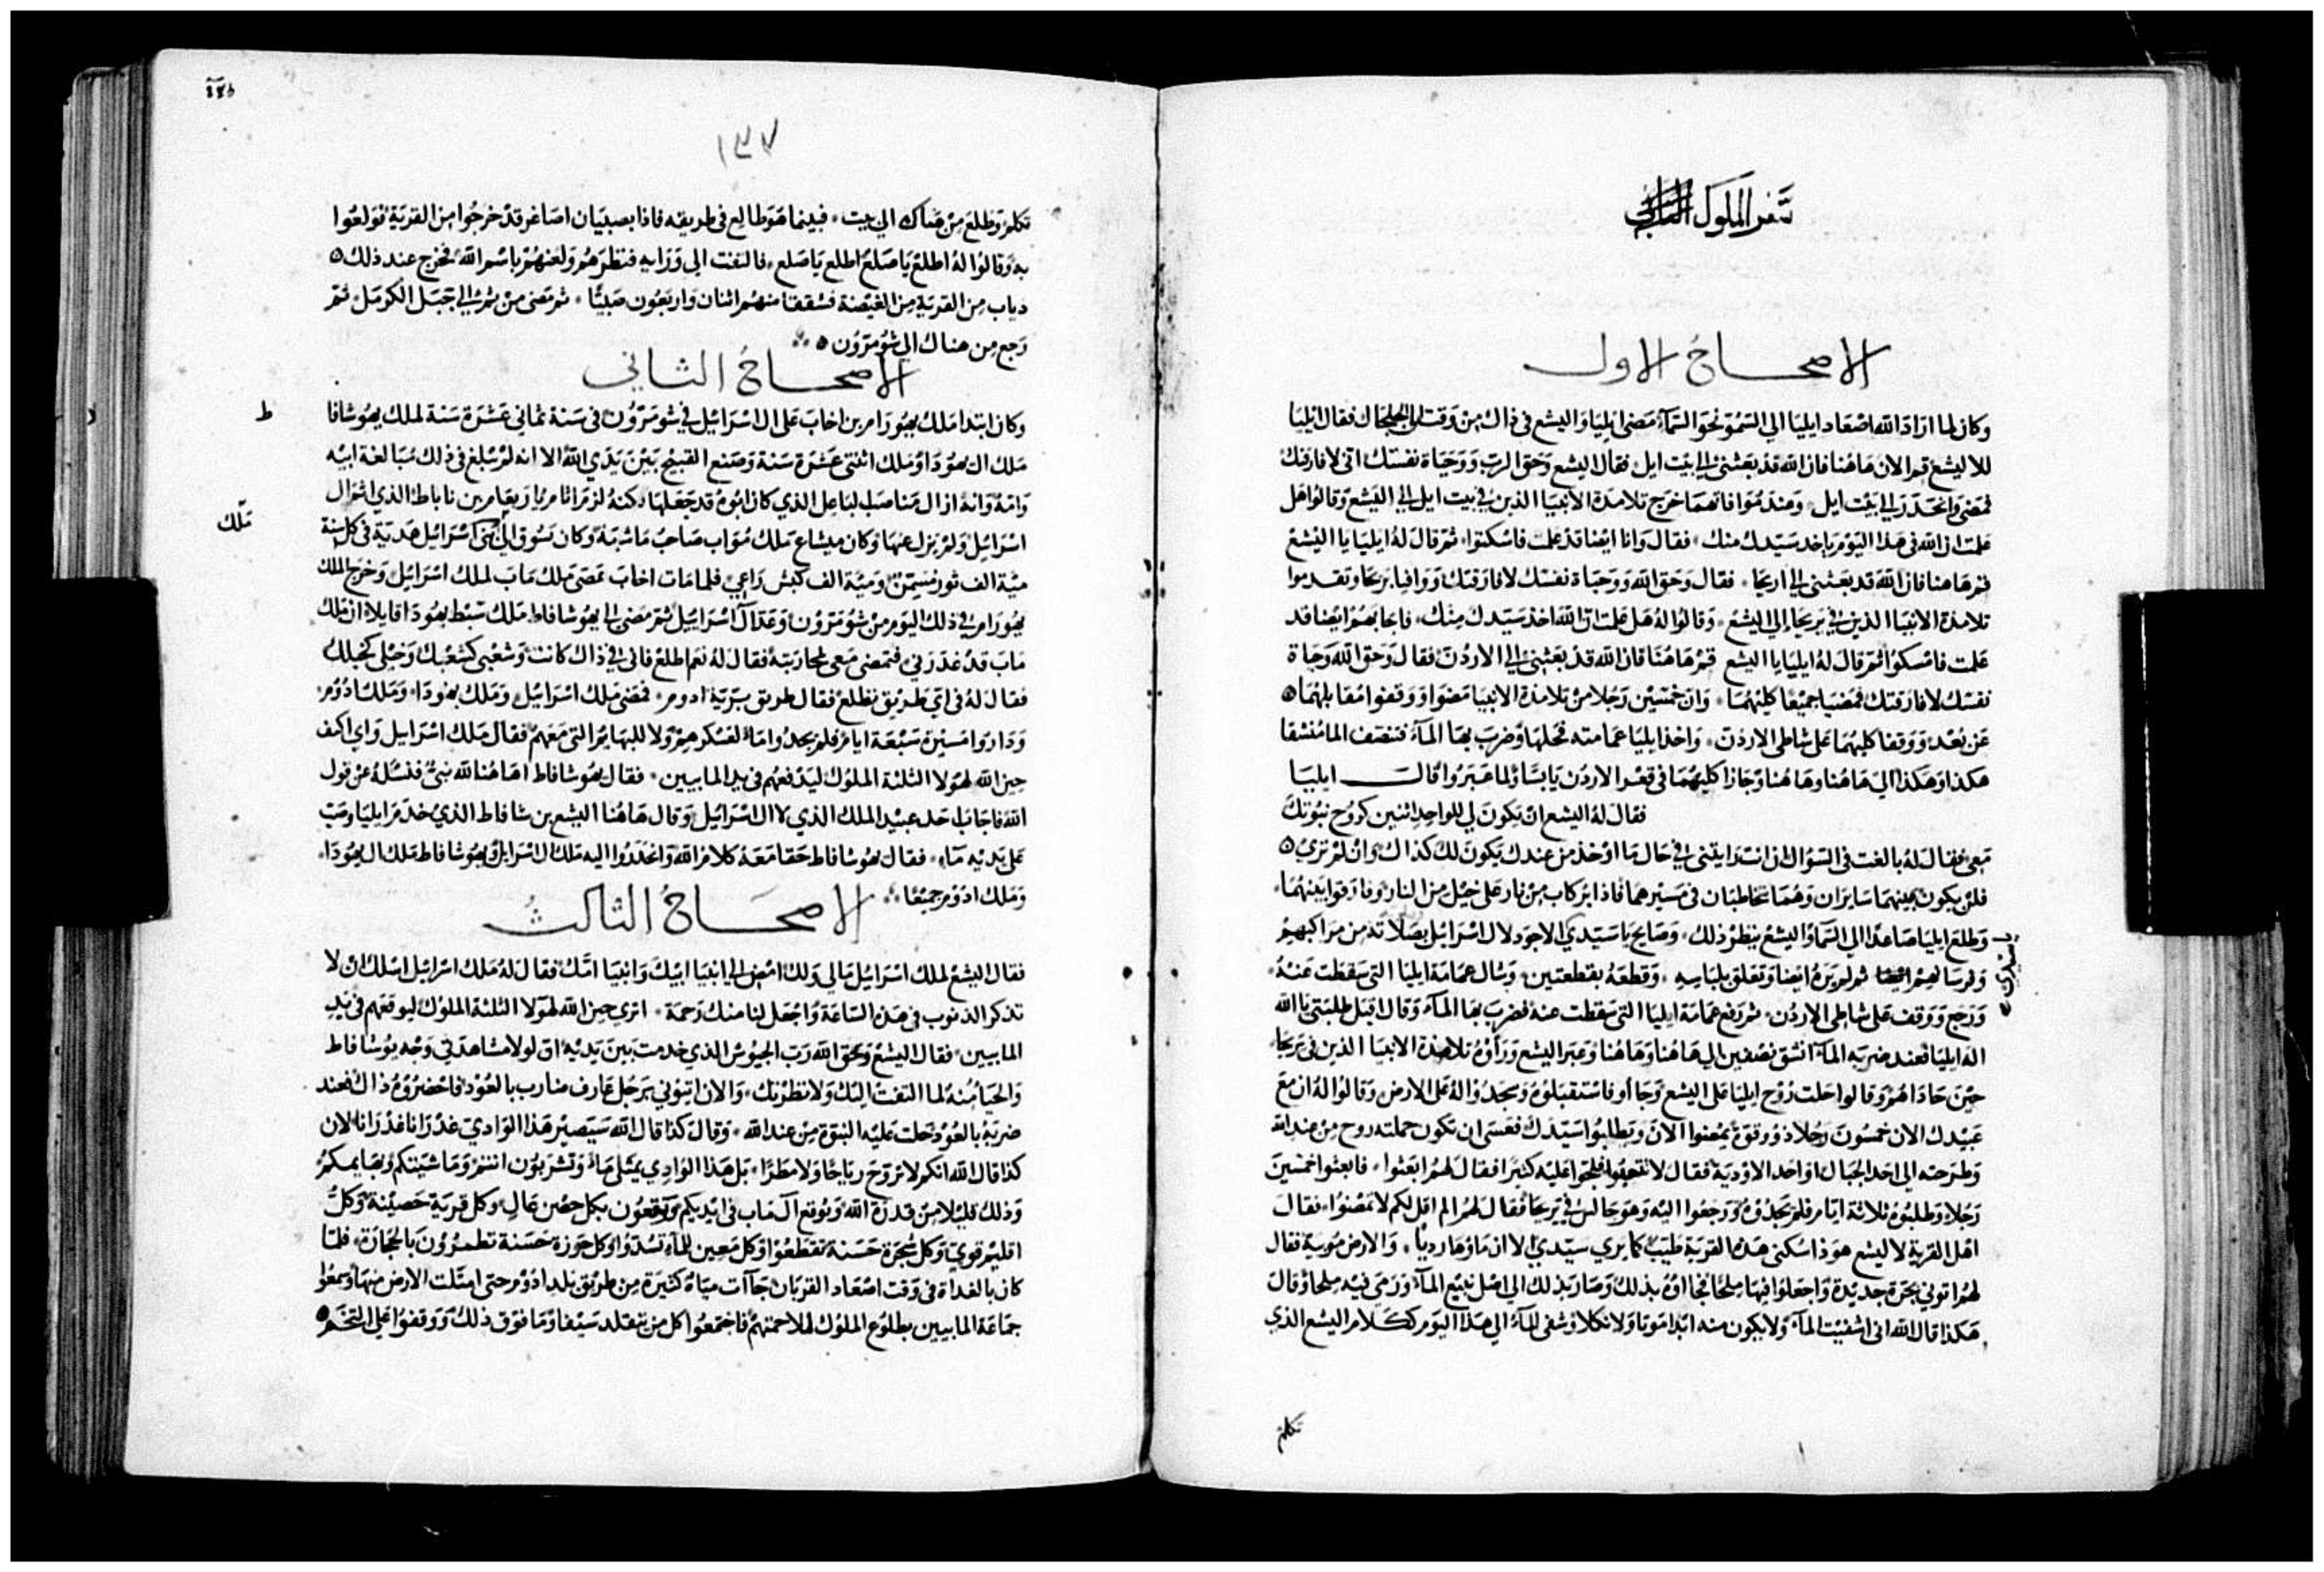 سفر الملوك
الاصحاح الاول
وكان لما اراد الله اصعاد ايليا الي السمو نحو السمآ مضي ايليا واليشع في ذاك من وقت الي الجلجال فقال ايليا
للاليشع قم الان هاهنا فان الله قد بعثني الي بيت ايل فقال اليشع وحق الرب ووحياة نفسك اني لا فارقتك
فمضي وانحدر الي بيت ايل وعند موافاتهما خرج تلامذة الانبيا الذين في بيت ايل الي اليشع وقالوا هل
علمت ان الله في هذا اليوم ياخذ سيدك منك فقال وانا ايضا قد علمت فاسكتوا ثم قال له ايليا يا اليشع
قم هاهنا فان الله قد بعثني الي اريحا فقال وحق الله ووحياة نفسك لا فارقتك ووافيا يريحا وتقدموا
تلامذة الانبيا الذين في يريحا الي اليشع وقالوا له هل علمت ان الله اخذ سيدك منك فاجابهم ايضا قد
علمت فامسكوا ثم قال له ايليا يا اليشع قم هاهنا فان الله قد بعثني الي الاردن فقال وحق الله وحياة
نفسك لا فارقتك فمضيا جميعا كليهما وان خمسين رجلا من تلامذة الانبيا مضوا ووقفوا مقابلهما
عن بعد ووقفا كليهما علي شاطي الاردن واخذ ايليا عمامته فحلها وضرب بها المآ فتنصف الما منشقا
هكذا وهكذا الي هاهنا وهاهنا وجازا كليهما في قعر الاردن يابسا ولما عبروا قال ايليا
فقال له اليشع ان يكون لي للواحد اثنين كروح نبوتك
معي فقال له بالغت في السوال ان انت رايتني في حال ما اوخذ من عندك يكون لك كذاك وان لم تري
فلن يكون بينهما سايران وهما يتخاطبان في مسيرهما فاذا بركاب من نار علي خيل من النار وفارقوا بينهما
وطلع ايليا صاعدا الي السمآ واليشع ينظر ذلك وصايح يا سيدي الاجود لال اسرايل بصلاته من مراكبهم
ثم لم يره ايضا وتعلق بلباسه وقطعه بقطعتين وشال عمامة ايليا التي سقطت عنه
ورجع ووقف علي شاطي الاردن ثم رفع عمامة ايليا التي سقطت عنه فضرب بها المآ وقال اقبل طلبتي يا الله
اله ايليا فعند ضربه المآ انشق نصفين الي هاهنا وهاهنا وعبر اليشع وراوه تلامذة الانبيا الذين في يريحا
حين حاذاهم وقالوا حلت روح ايليا علي اليشع وجاوا فاستقبلوه وسجدوا له علي الارض وقالوا له ان مع
عبيدك الان خمسون رجلا ذوو قوة يمضوا الان ويطلبوا سيدك فعسي ان تكون حملته روح من عند الله
وطرحته الي احد الجبال او احد الاودية فقال لا تبعثوا فلجوا عليه كثيرا فقال لهم ابعثوا فابعثوا خمسين
رجلا وطلبوه ثلاثة ايام فلم يجدوه ورجعوا اليه وهو جالس في يريحا فقال لهم الم اقل لكم لا تمضوا فقال
اهل القرية لاليشع هوذا سكني هذه القرية طيب كما يري سيدي الا ان ماوها رديا والارض موبية فقال
لهم اتوني بجرة جديدة واجعلوا فيها ملحا فجاوه بذلك وصار بذلك الي اصل نبيع المآ ورمي فيه ملحا وقال
هكذا قال الله اني اشفيت المآ ولا يكون منه ابدا موتا ولا نكلا وشفي المآ الي هذا اليوم ككلام اليشع الذي
تكلم
١٣٧
تكلم وطلع من هناك الي بيت فبينما هو طالع في طريقه فاذا بصبيان اصاغر قد خرجوا من القرية تولعوا
به وقالوا له اطلع يا صلع اطلع يا صلع فالتفت الي ورايه فنظرهم ولعنهم باسم الله فخرج عند ذلك
دياب من القرية من الغيضة فشققا منهم اثنان واربعون صبيا ثم مضي من ثم الي جبل الكرمل ثم
رجع من هناك الي شومرون
الاصحاح الثاني
وكان ابتدا ملك يهورام بن اخاب علي ال اسرايل في شومرون في سنة ثماني عشرة سنة لملك يهوشافا
ط
ملك ال يهودا وملك اثنتي عشرة سنة وصنع القبيح بين يدي الله الا انه لم يبلغ في ذلك مبالغة ابيه
وامه وانه ازال مناصب لباعل الذي كان ابوه قد جعلها لكنه لزم اثام يربعام بن ناباط الذي اثم ال
اسرايل ولم يزل عنها وكان ميشاع ملك مواب صاحب ماشية وكان يسوق الي بني اسرايل هدية في كل سنة
ملك
مية الف ثور مسمن ومية الف كبش راعي فلما مات اخاب عصي ملك ماب لملك اسرايل وخرج الملك
يهورام في ذلك اليوم من شومرون وعد آل اسراييل ثم مضي الي يهوشافاط ملك سبط يهودا قايلا ان ملك
ماب قد غدر بي فتمضي معي لمحاربته فقال له نعم اطلع فاني في ذاك كانت وشعبي كشعبك وخيلي كخيلك
فقال له في اي طريق نطلع فقال طريق برية ادوم فمضي ملك اسرايل وملك يهودا وملك ادوم
وداروا مسيرة سبعة ايام فلم يجدوا مآ لعسكرهم ولا للبهايم التي معهم فقال ملك اسرايل واي اكف
حيز الله لهولا الثلثة الملوك ليدفعهم في يد المابيين فقال يهوشافاط اهاهنا لله نبي فنساله عن قول
الله فاجاب احد عبيد الملك الذي لال اسرايل وقال هاهنا اليشع بن شافاط الذي خدم ايليا وصب
علي يديه مآء فقال يهوشافاط حقا معه كلام الله وانحدروا اليه ملك ال اسرايل ويهوشافاط ملك ال يهودا
وملك ادوم جميعا
الاصحاح الثالث
فقال اليشع لملك اسرايل مالي ولك امض الي انبيا ابيك وانبيا امك فقال له ملك اسرايل اسلك ان لا
تذكر الذنوب في هذه الساعة واجعل لنا منك رحمة اتري حيز الله لهولا الثلثة الملوك ليوقعهم في يد
المابيين فقال اليشع وحق الله رب الجيوش الذي خدمت بين يديه ان لولا مشاهدتي وجه يوشافاط
والحيا منه لما التفت اليك ولا نظرتك والان ايتوني برجل عارف ضارب بالعود فاحضروه ذاك فعند
ضربه بالعود حلت عليه النبوة من عند الله وقال كذا قال الله سيصير هذا الوادي غدرانا غدرانا لان
كذا قال الله انكم لا تروح رياحا ولا مطرا بل هذا الوادي يمتلي مآ وتشربون انتم وماشيتكم وبهايمكم
وذلك قليلا من قدرة الله ويوقع آل ماب في ايديكم وتوقعون بكل حصن عال وكل قرية حصينة وكل
اقليم قوي وكل شجرة حسنة تقطعوا وكل معين للمآء تسدوا وكل حوزة حسنة تطمرون بالحجارة فلما
كان بالغداة في وقت اصعاد القربان جآات مياه كثيرة من طريق بلد ادوم حتي امتلت الارض منها وسمعوا
جماعة المابيين بطلوع الملوك لملاحمتهم فاجتمعوا كل من تقلد سيفا وما فوق ذلك ووقفوا علي التخم